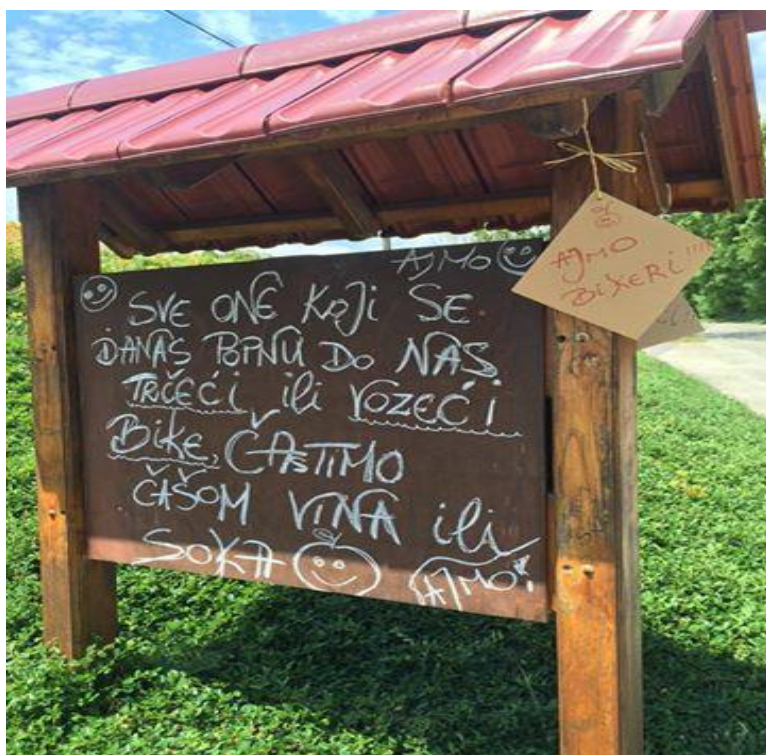 AJMO
SVE ONE KOJI SE
DANAS POPNU DO NAS
TRČEĆI ili VOZEĆI
BIKE, ČASTIMO
ČAŠOM VINA ili
SOKA
AJMO!
AJMO
BIKERI!!!!